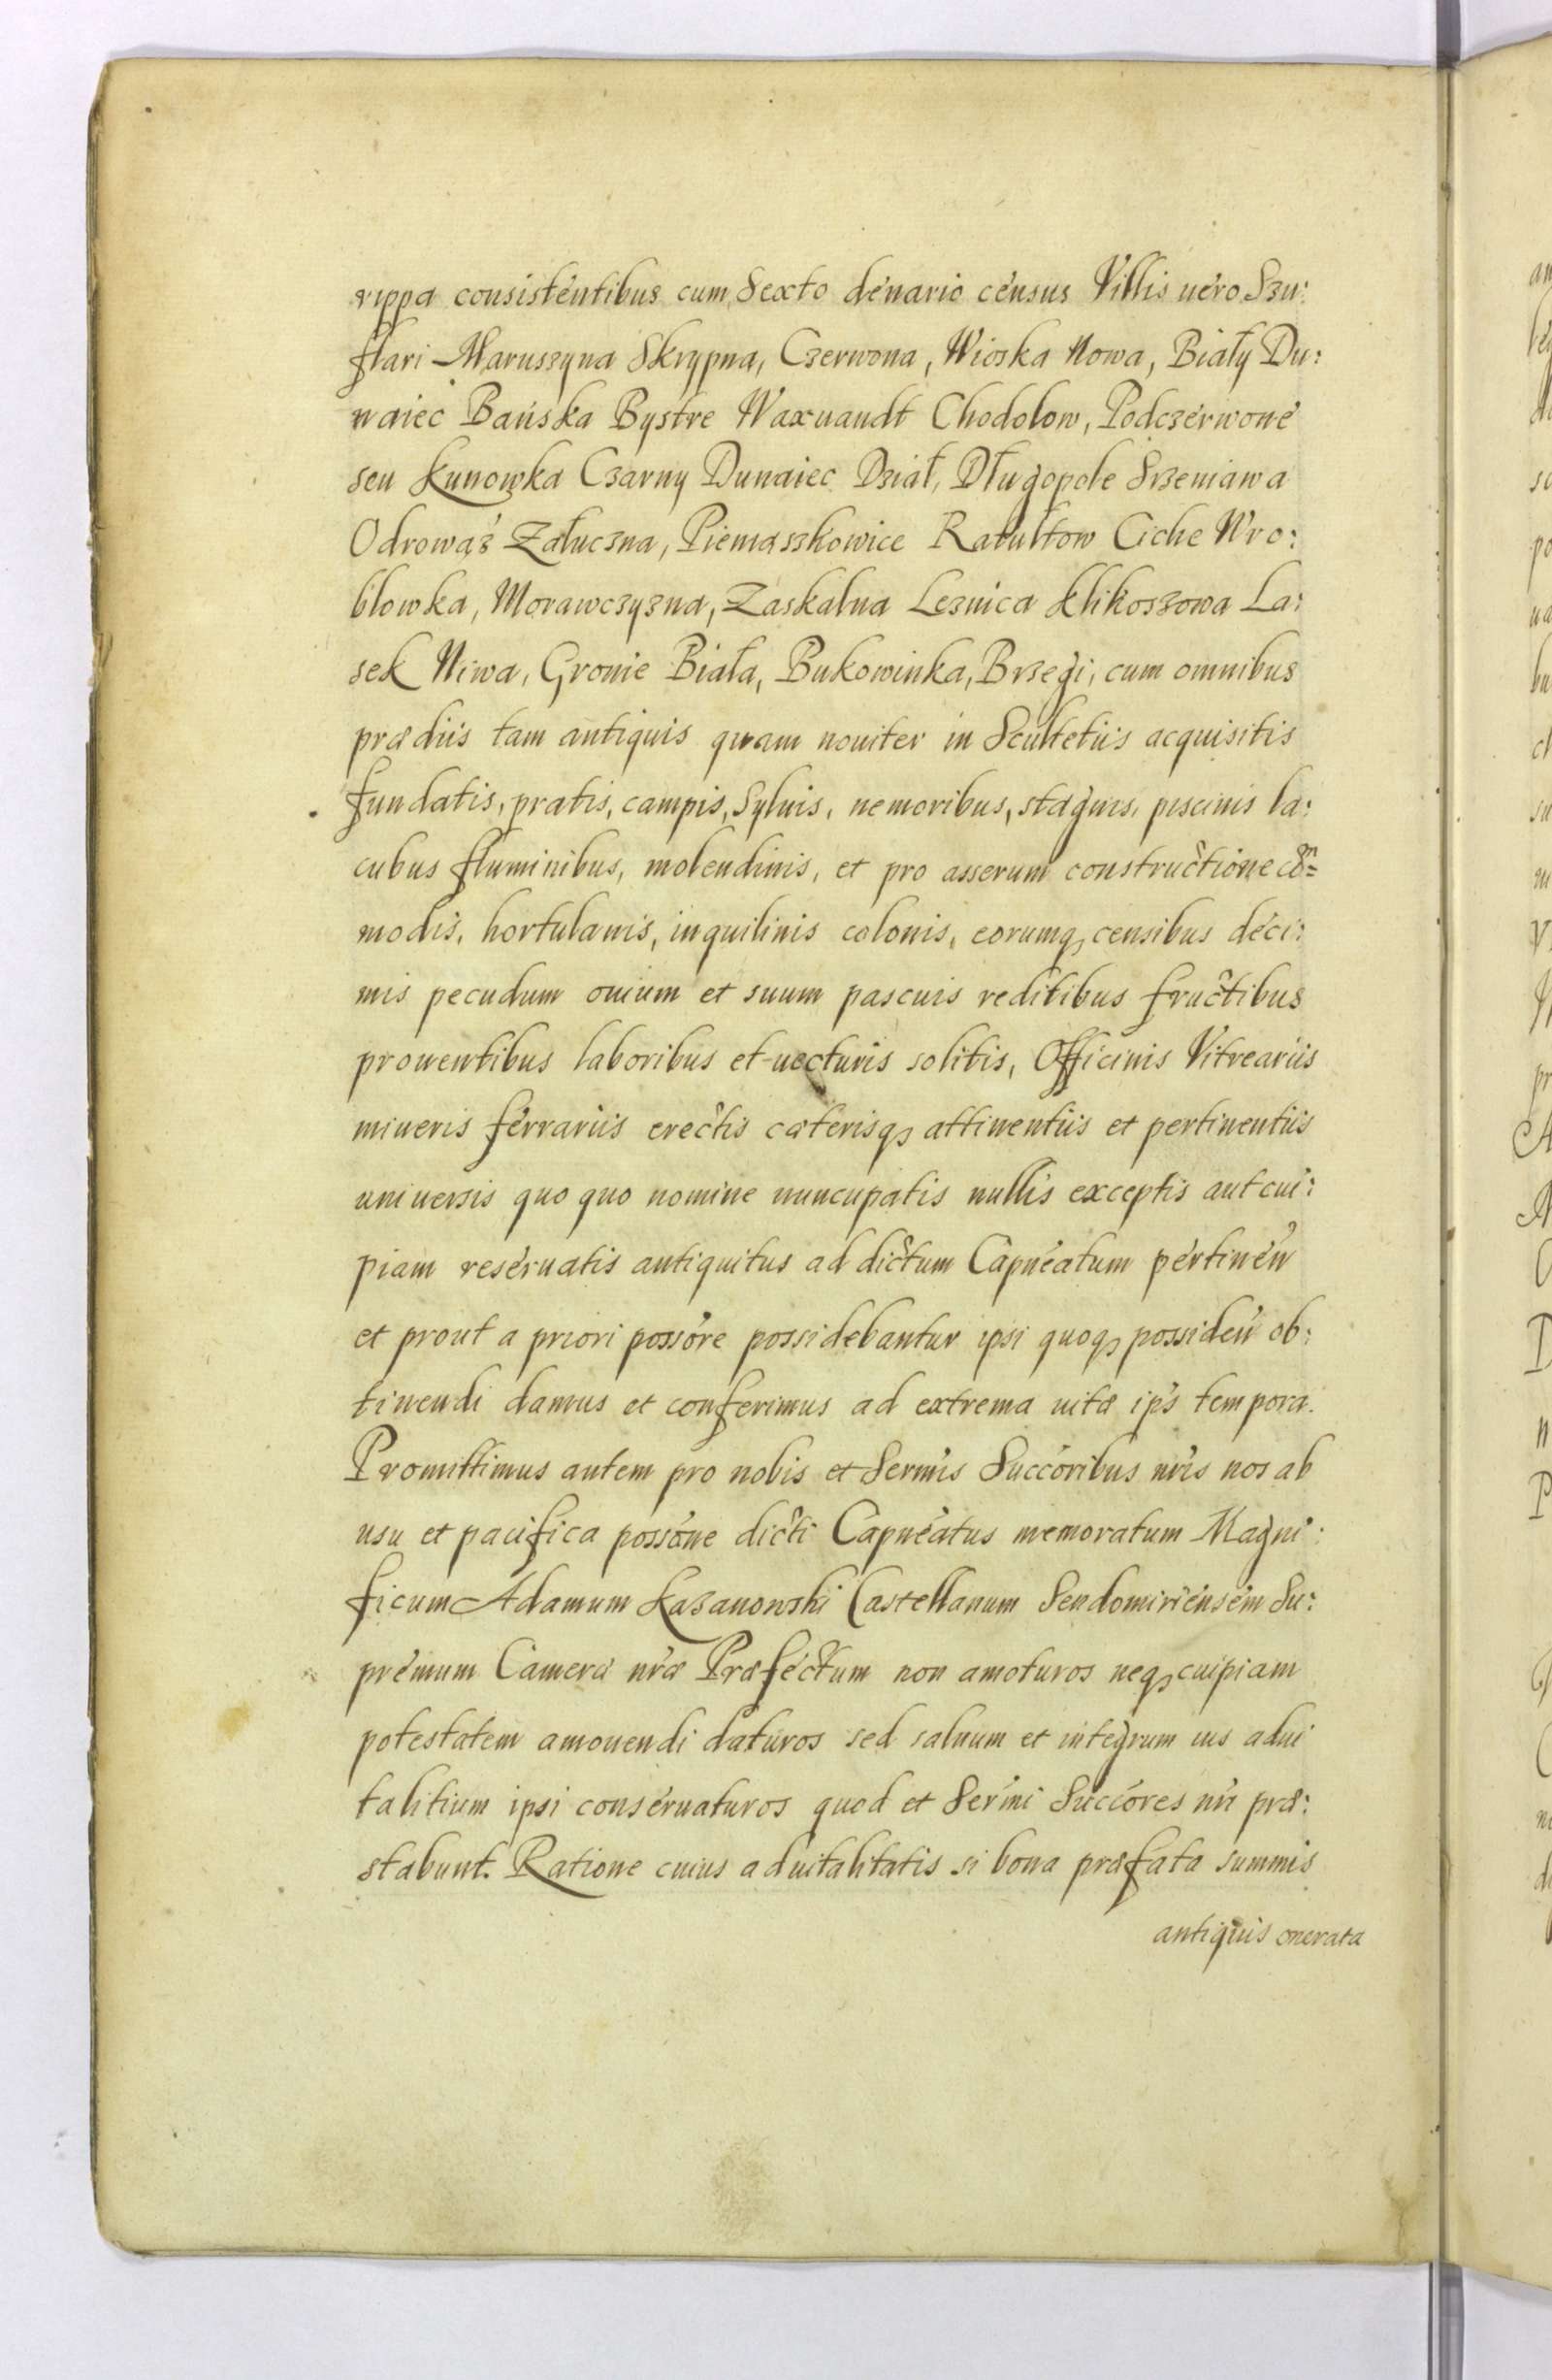 rippa consisténtibus cum Sexto dénario cénsus Villis uéro Szu:
flari Maruszyna Skrzypna, Czerwona, Wioska Nowa, Biały Du:
naiec Bańska Bystre Waxuandt Chodolow, Podczérwoné
seu Kunowka Czarny Dunaiec Dział, Długopole Srzeniawa
Odrowąż Załuczna, Piemąszkowice Ratułtow Ciche Wro:
blowka, Morawczyzna, Zaskalna Leznica Klikoszowa La:
sek Niwa, Gronie Biała, Bukowinka, Brzegi, cum omnibus
prædiis tam antiquis quam nouiter in Scultetiis acquisitis
fundatis, pratis, campis, Syluis, nemoribus, stagnis, piscinis la:
cubus fluminibus, molendinis, et pro asserum constructione co͞m=
modis, hortulanis, inquilinis colonis, eorumq₃ censibus déci:
mis pecudum ouium et suum pascuis reditibus fructibus
prouentibus laboribus et uecturis solitis, Officinis Vitreariis
mineris férrariis erectis cæterisq₃ attinentiis et pertinentiis
uniuersis quo quo nomine nuncupatis nullis exceptis aut cui:
piam resérnatis antiquitus ad dictum Capnéatum pértinén̄
et prout a priori possōre possidebantur ipsi quoq₃ possiden̄ ob:
tinendi damus et conferimus ad extrema uitæ ip̄s tempora.
Promittimus autem pro nobis et Serm̄is Succōribus nr̄is nos ab
usu et pacifica possōne dicti Capnéatus memoratum Magni:
ficum Adamum Kazanowski Castellanum Sendomiriénsém Su:
prémum Cameræ nr̄æ Præféctum non amoturos neq₃ cuipiam
potestatem amouendi daturos sed saluum et integrum ius adui
talitium ipsi consérnaturos quod et Serm̄i Succōres nr̄i præ:
stabunt. Ratione cuius aduitalitatis si bona præfata summis
antiquis onerata